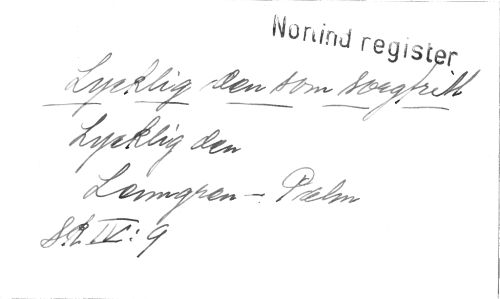 Nomind register
Lycklig den som sorgfritt
Lycklig den
Lenngren - Palm
S.S. IV: 9